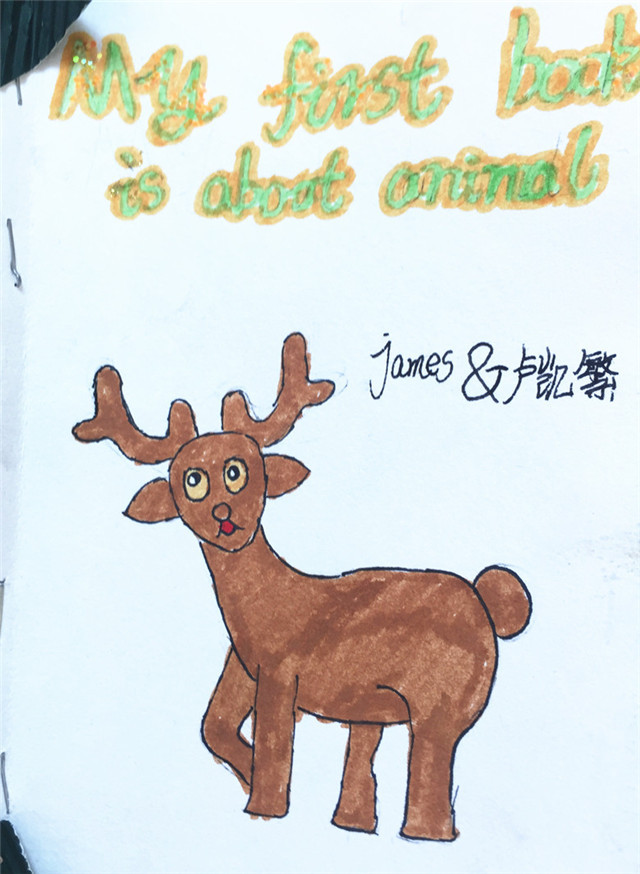 My first book
is aboot animal
james & 卢凯繁